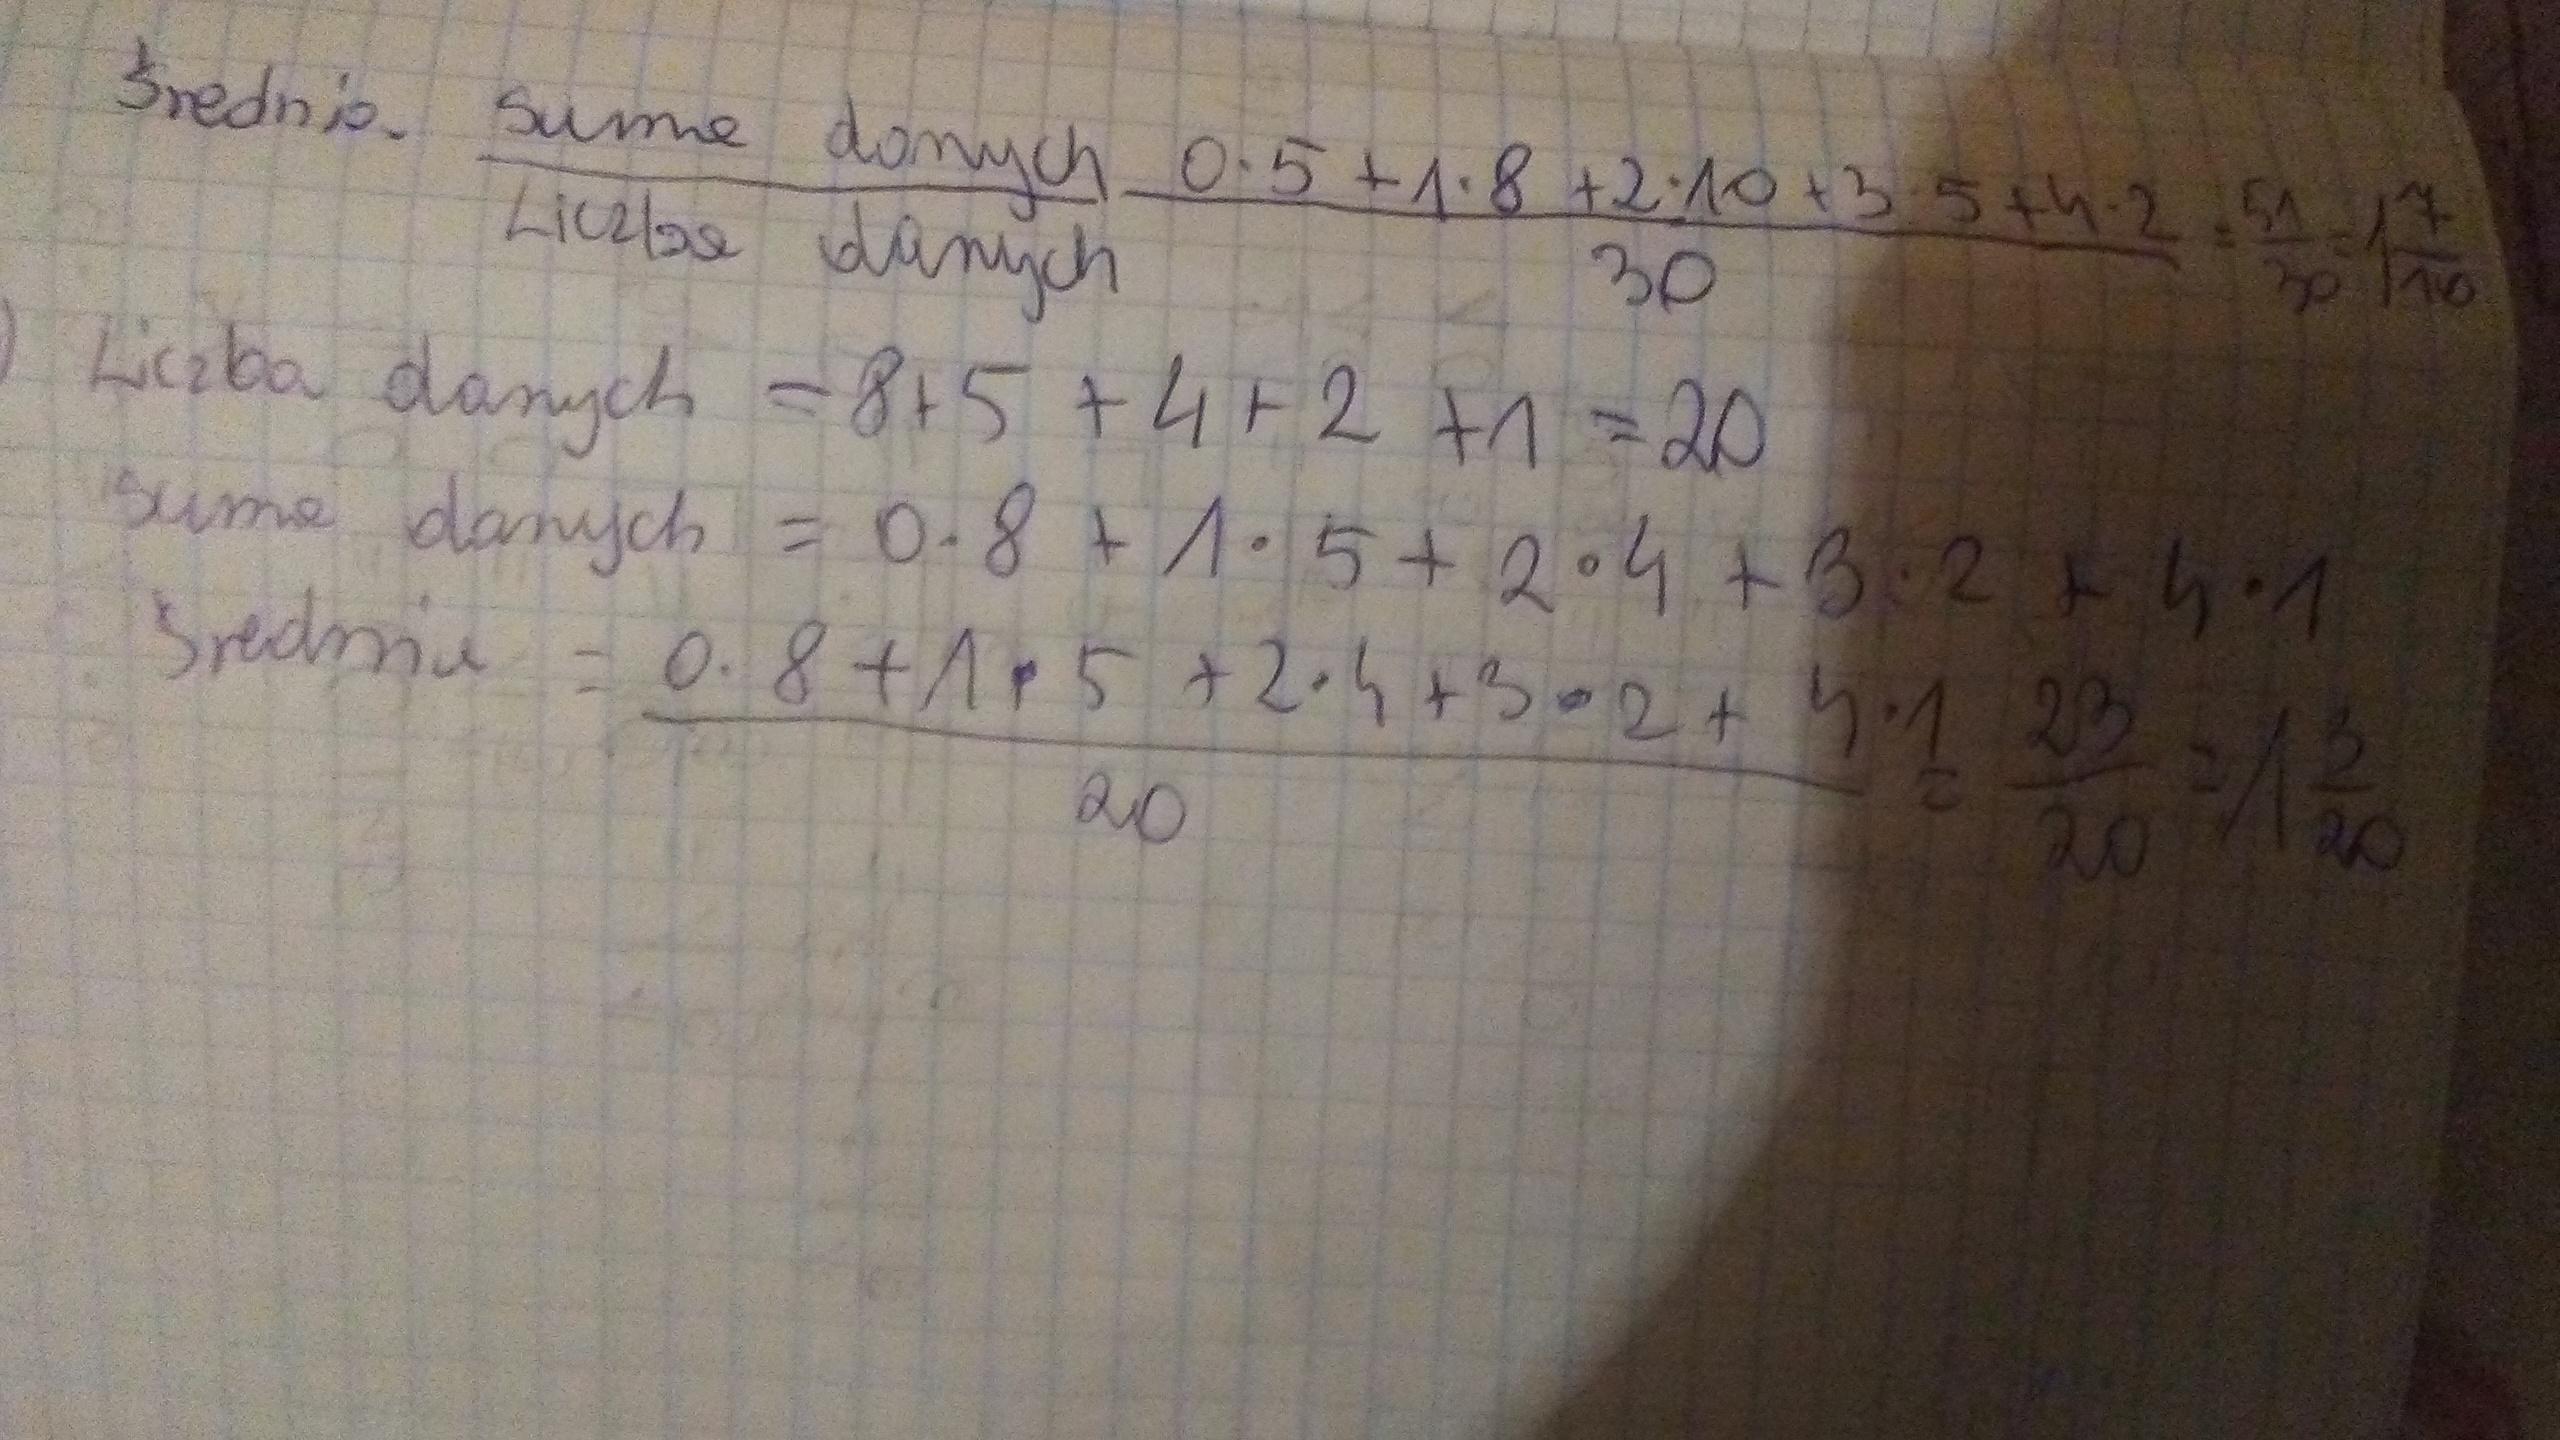 Średnia = suma danych / Liczba danych = 0·5+1·8+2·10+3·5+4·2 / 30 = 51/30 = 1 7/10
) Liczba danych = 8+5+4+2+1=20
suma danych = 0·8+1·5+2·4+3·2+4·1
Średnia = 0·8+1·5+2·4+3·2+4·1 / 20 = 23/20 = 1 3/20